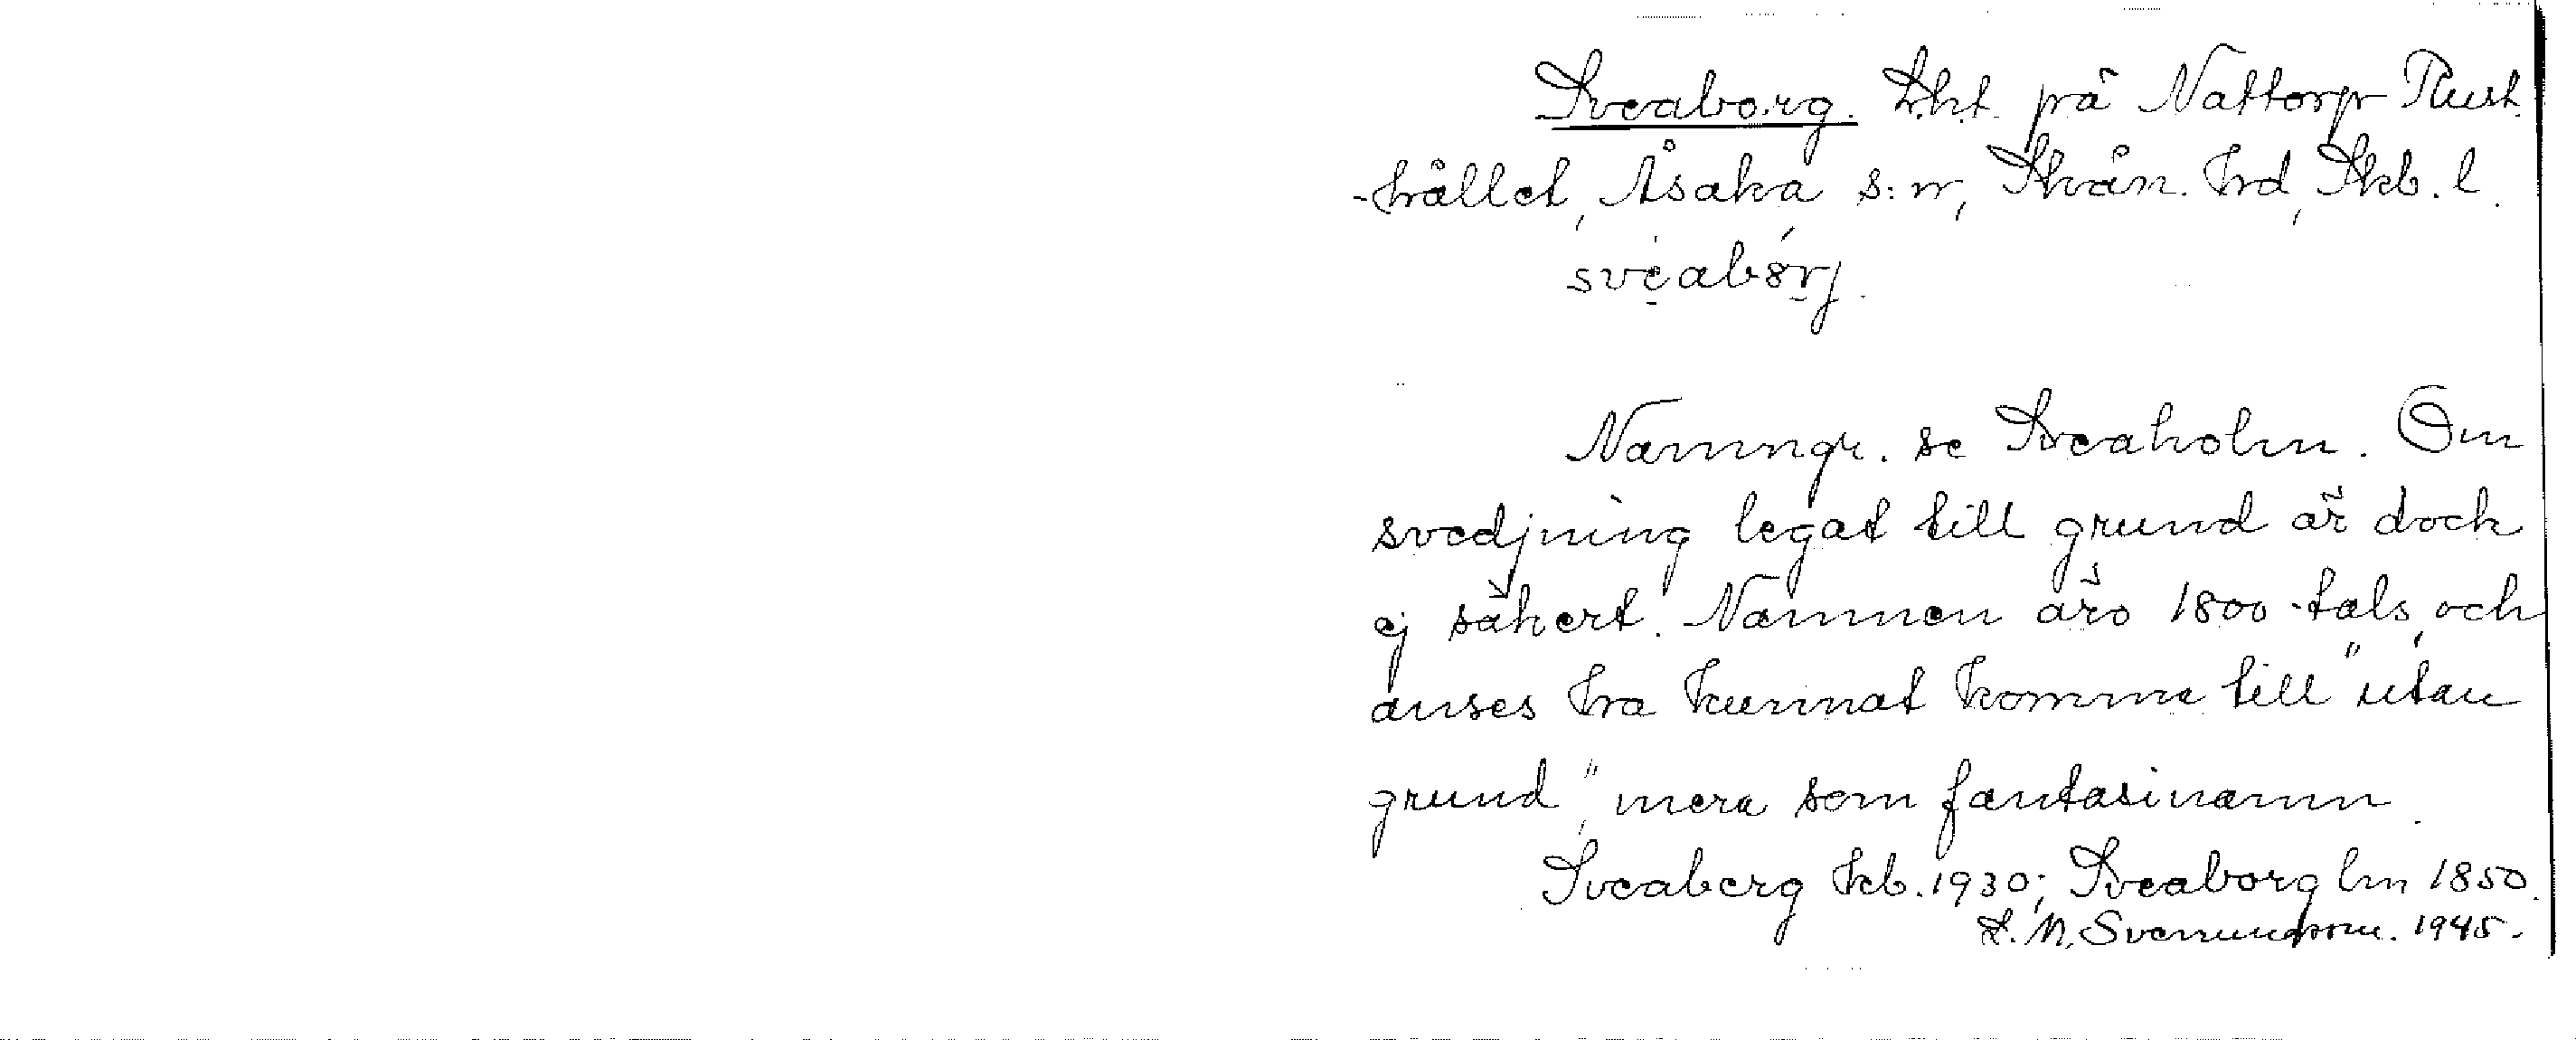 Sveaborg. Lht. på Nattorp Rust
-hållet, Åsaka s:n, Skån. hd, Skb. l.
sveabörj.
Namngr. se Sveaholm. Om
svedjning legat till grund är dock
ej säkert. Namnen äro 1800-tals, och
anses ha kunnat komma till "utan
grund", mera som fantasinamn.
Sveaberg kb. 1930; Sveaborg lm 1850.
1945.